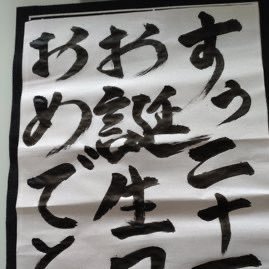 すぅ二十一
お誕生日
おめでと